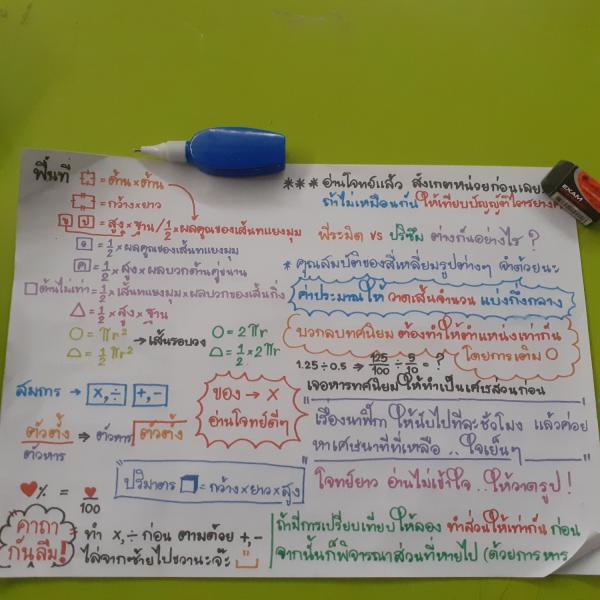 พื้นที่
= ด้าน×ด้าน
= กว้าง×ยาว
ข ป = สูง×ฐาน/½×ผลคูณของเส้นทแยงมุม
= ½×ผลคูณของเส้นทแยงมุม
ค = ½×สูง×ผลบวกด้านคู่ขนาน
□ด้านไม่เท่า = ½×เส้นทแยงมุม×ผลบวกของเส้นกิ่ง
△ = ½×สูง×ฐาน
○ = πr² →เส้นรอบวง ○ = 2πr
= ½πr² = ½×2πr
สมการ → ×,÷ +,-
ตัวตั้ง ⇒ ตัวหาร ตัวตั้ง
ตัวหาร
ของ → ×
อ่านโจทย์ดีๆ
♥% = ♥/100
ปริมาตร = กว้าง×ยาว×สูง
คาถา
กันลืม!
= ทำ ×,÷ก่อน ตามด้วย +,-
ไล่จากซ้ายไปขวานะจ๊ะ
*** อ่านโจทย์แล้ว สังเกตหน่วยก่อนเลย
ถ้าไม่เหมือนกัน ให้เทียบบัญญัติไตรยางศ์
พีระมิด vs ปริซึม ต่างกันอย่างไร ?
* คุณสมบัติของสี่เหลี่ยมรูปต่างๆ จำด้วยนะ
ค่าประมาณ ให้ วาดเส้นจำนวน แบ่งกึ่งกลาง
บวกลบทศนิยม ต้องทำให้ตำแหน่งเท่ากัน
โดยการเติม 0
1.25÷0.5 ⇒ 125/100 ÷ 5/10 = ?
เจอหารทศนิยม ให้ทำเป็นเศษส่วนก่อน
เรื่องนาฬิกา ให้นับไปทีละชั่วโมง แล้วค่อย
หาเศษนาทีที่เหลือ ..ใจเย็นๆ
โจทย์ยาว อ่านไม่เข้าใจ..ให้วาดรูป !
ถ้ามีการเปรียบเทียบให้ลอง ทำส่วนให้เท่ากัน ก่อน
จากนั้นก็พิจารณาส่วนที่หายไป (ด้วยการหาร
EXAM